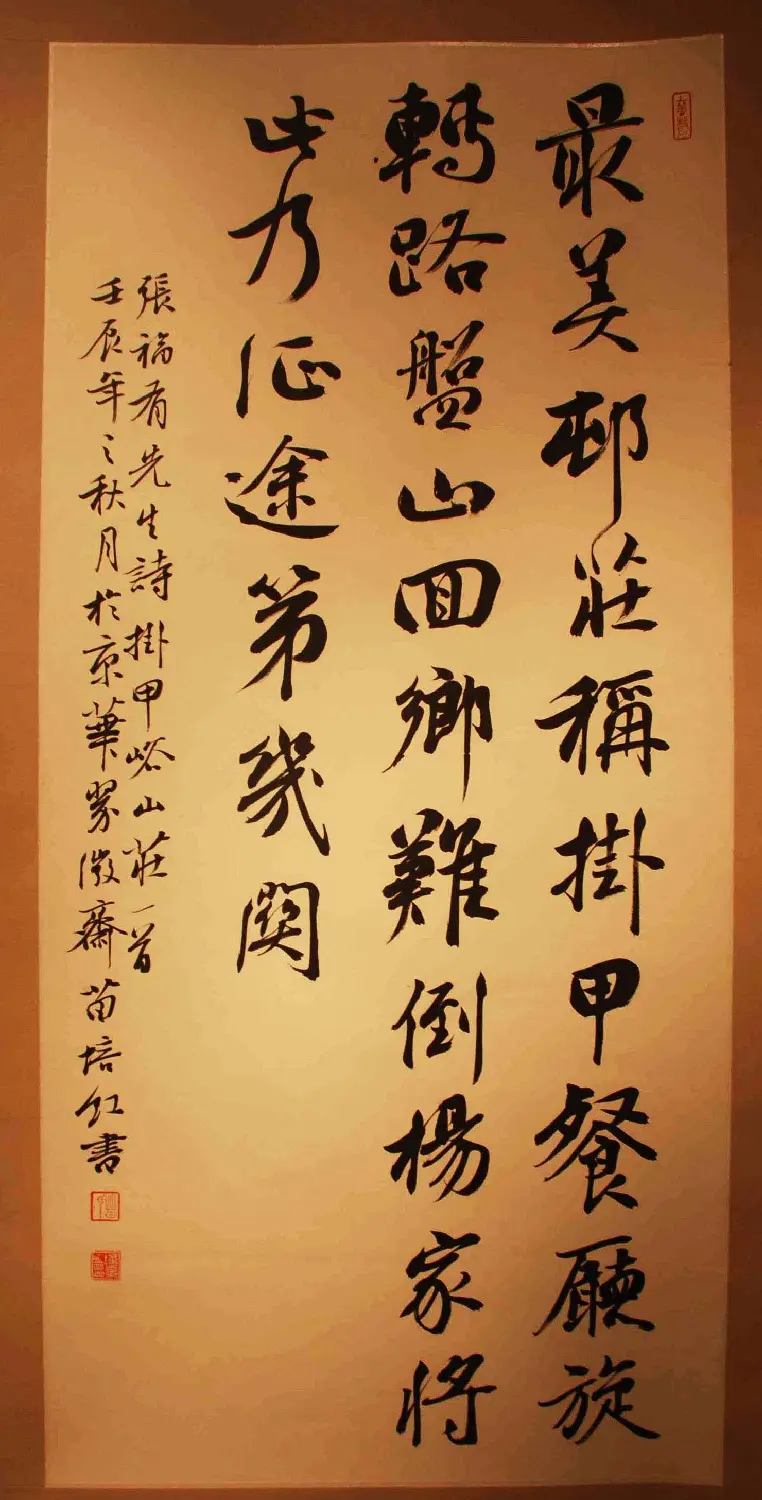 最美邨莊稱掛甲餐廳旋
轉路盤山回鄉難倒楊家將
此乃征途第幾関
張福有先生詩掛甲峪山莊一首
壬辰年之秋月於京華翠微齋苗培红書